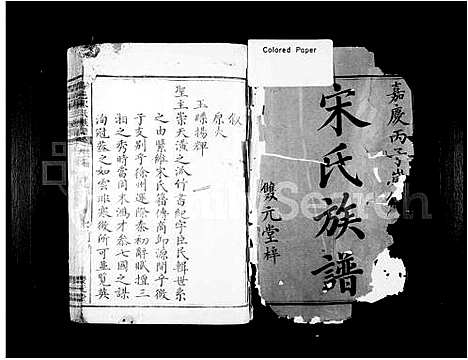 Colored Paper
嘉慶丙子歲
宋氏族譜
雙元堂梓
叙
原夫
玉牒揚輝
聖主崇天潢之派竹書紀宗臣氏輯世系
之由緊維宋氏籍傳商邱源開乎微
子支別乎徐州運際泰初辭賦擅三
湘之秀時當同末酒才參七國之謀
洵冠蓋之如雲非寒後所可並覧英